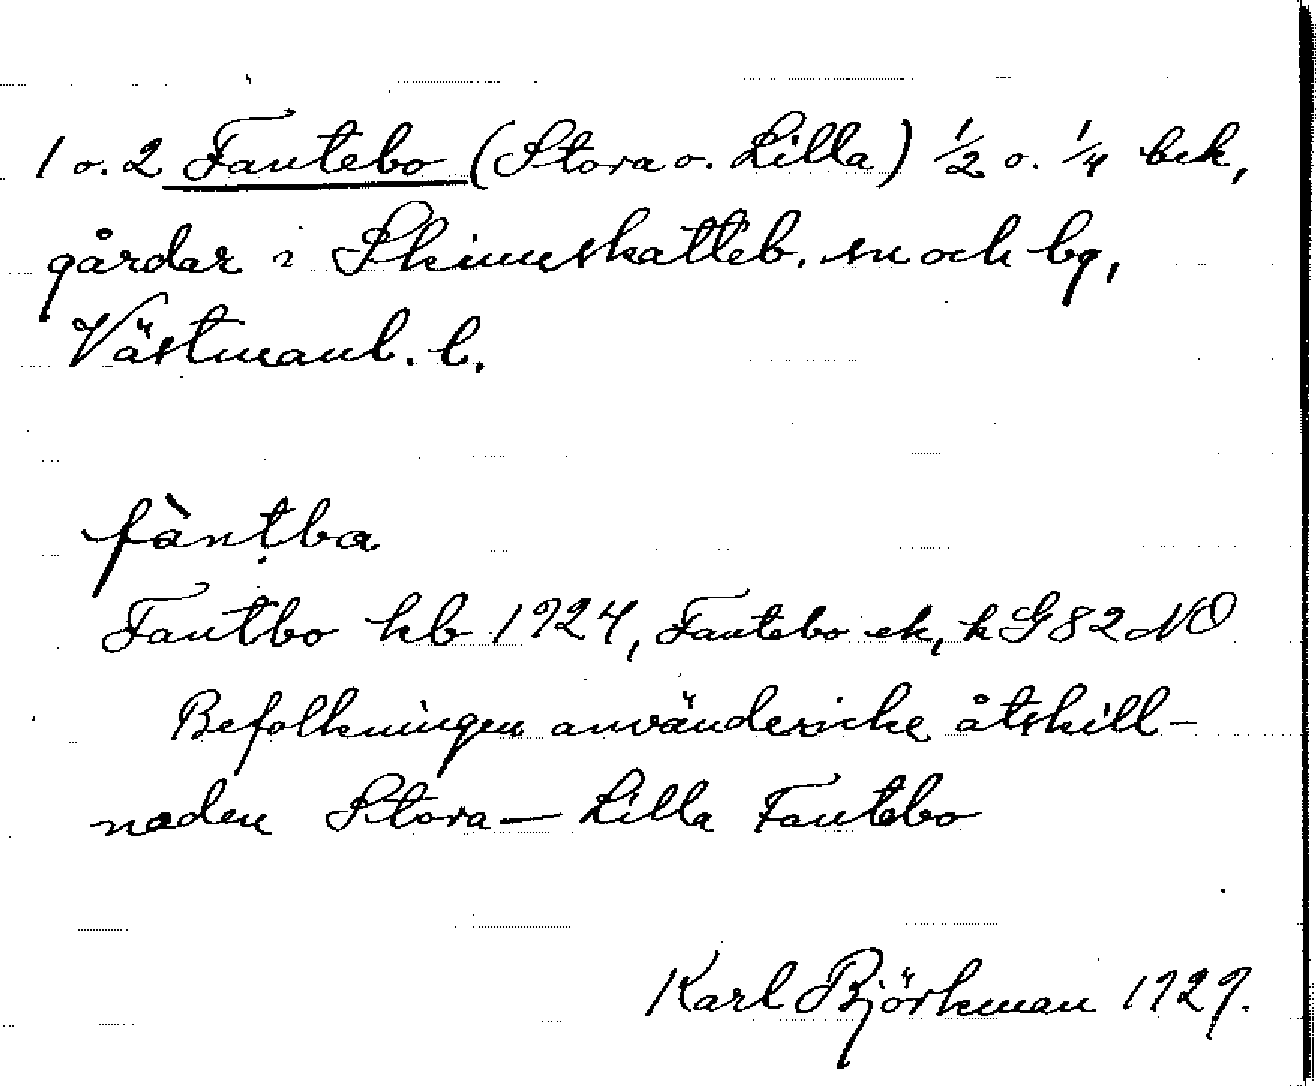 1 o. 2 Fantebo (Stora o. Lilla) 1/2 o. 1/4 bek,
gårdar i Skinnskatteb. sn och bg,
Västmanl. l.
fàntba
Fantbo kb 1924, Fantebo ek, k G 82 NO
Befolkningen använder icke åtskill-
naden Stora — Lilla Fantebo
Karl Björkman 1929.